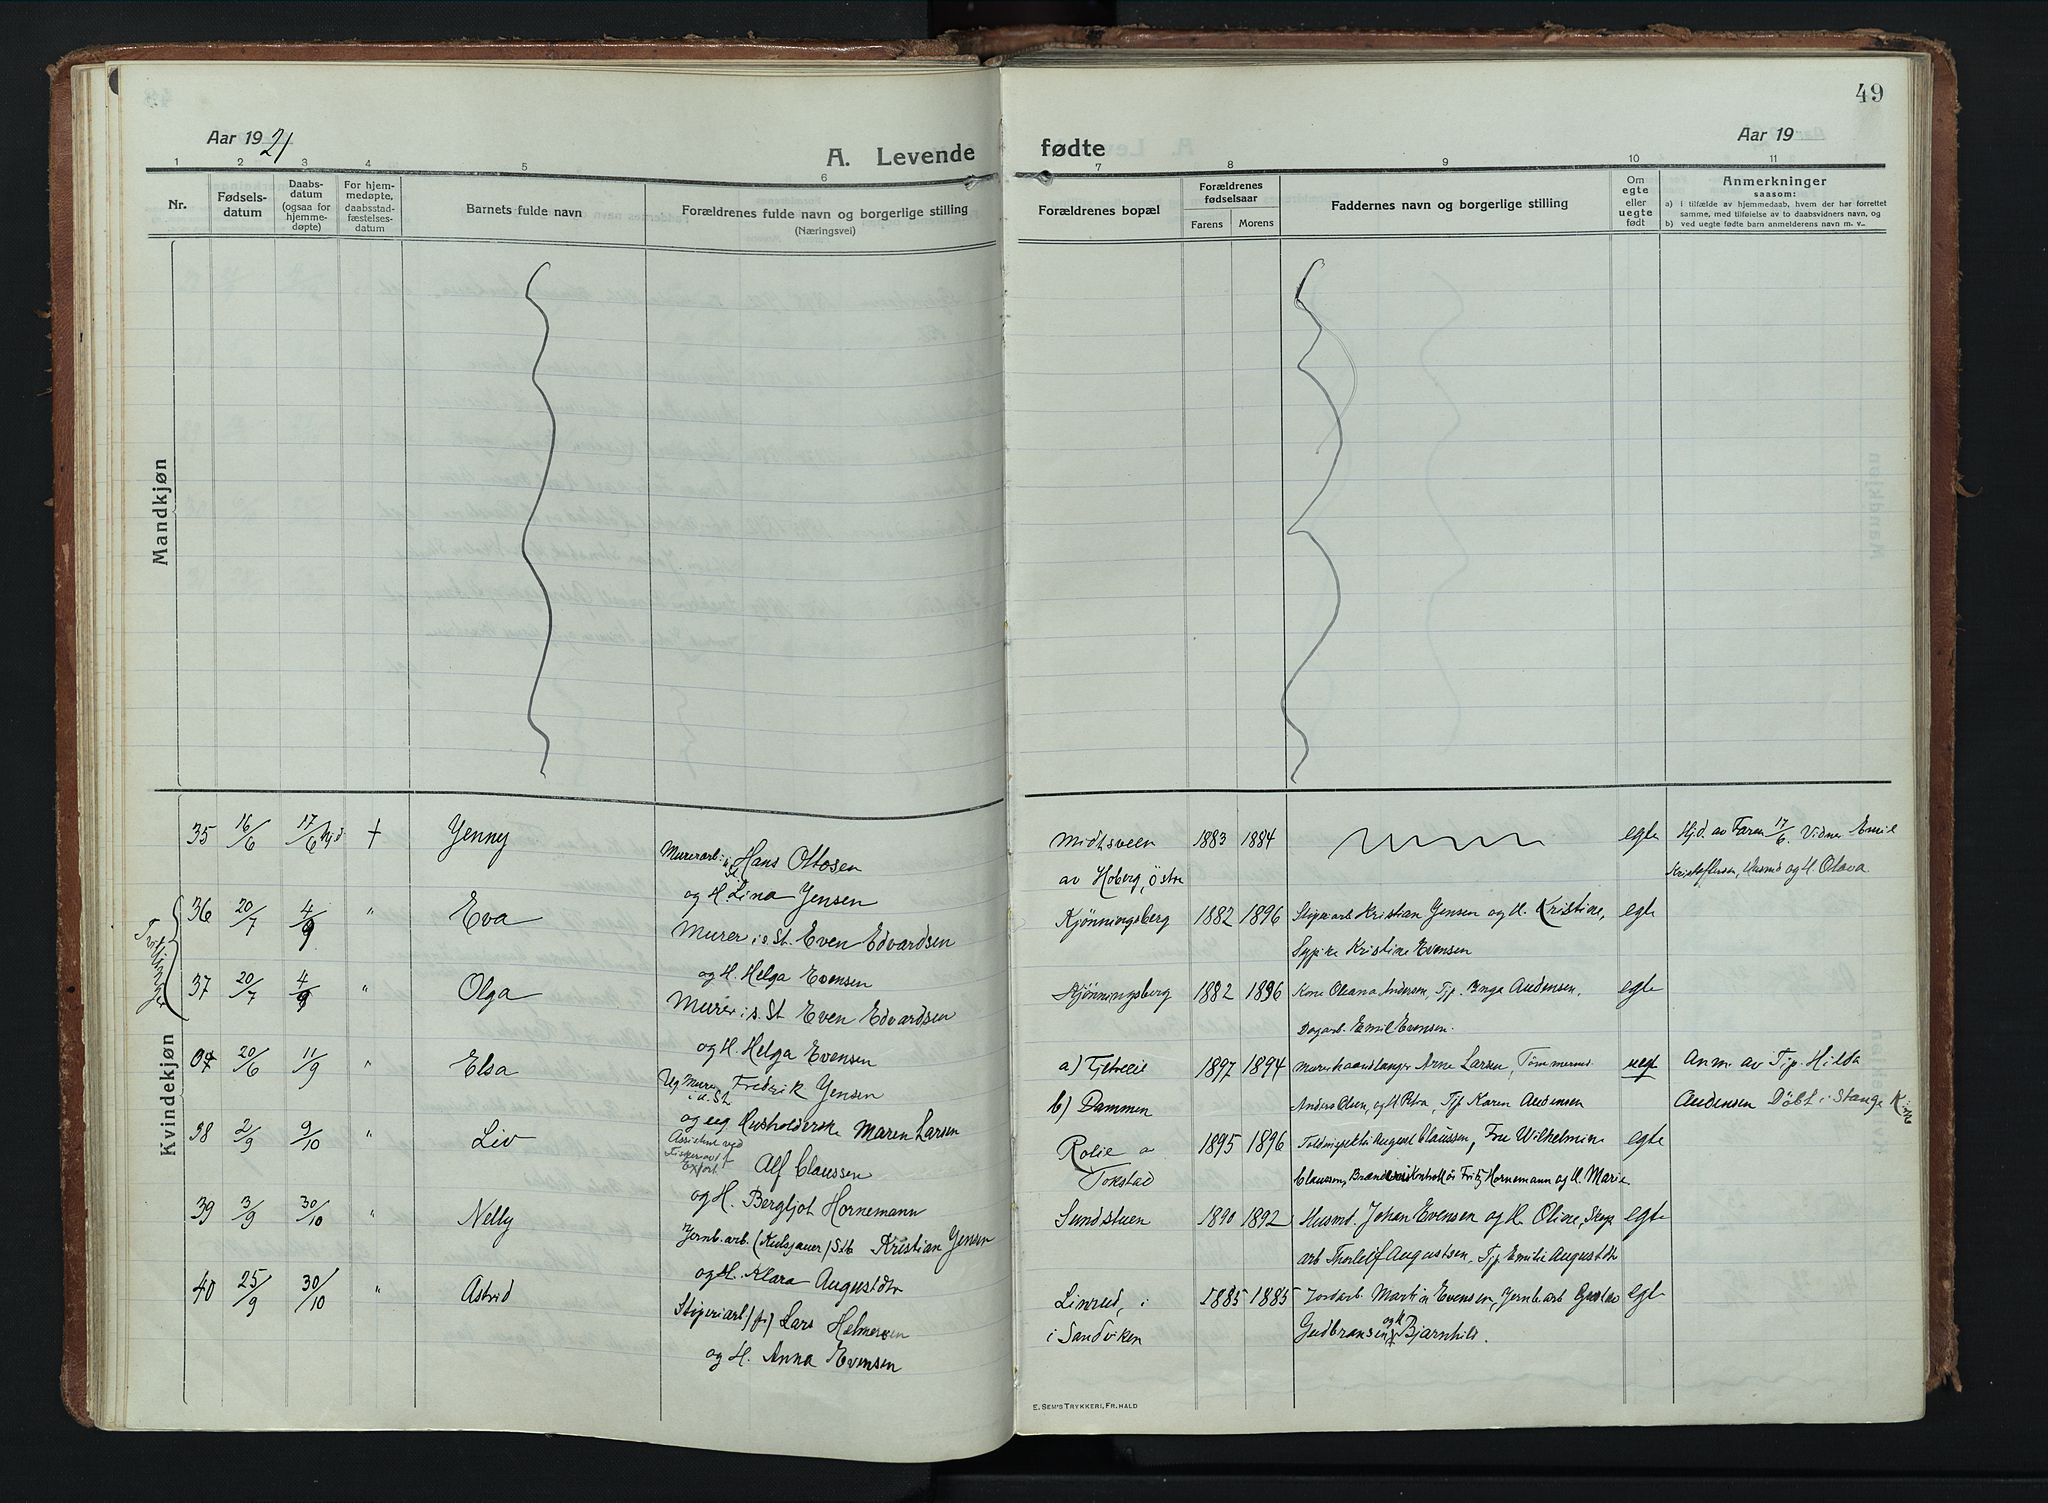 49
Aar 1921
Aar 19
A. Levende fødte
1 2 3 4 5 6 7 8 9 10 11
Nr.
Fødselsdatum
Daabsdatum (ogsaa for hjemmedøpte)
For hjemmedøpte, daabsstadfæstelsesdatum
Barnets fulde navn
Forældrenes fulde navn og borgerlige stilling
(Næringsvei)
Forældrenes bopæl
Forældrenes fødselsaar
Farens Morens
Faddernes navn og borgerlige stilling
Om egte eller uegte født
Anmerkninger
saasom:
a) i tilfælde av hjemmedaab, hvem der har forrettet
samme, med tilføielse av to daabsvidners navn, og
b) ved uegte fødte barn anmelderens navn m. v..
Mandkjøn
Kvindekjøn
Tvillinger
35 16/6 17/6 hjd + Jenny
Murerarb. i St. Hans Ottosen
og H. Lina Jensen
Midtsveen
av Hoberg, östre
1883 1884
egte
Hjd. av Faren 17/6. Vidne Emil
Kristoffersen, Husmd og H. Olava
36 20/7 4/9 " Eva
Murer i s. St. Even Edvardsen
og H. Helga Evensen
Kjönningsberg
1882 1896
Stigerarb Kristian Jensen og H. Kristine,
Sypike Kristine Evensen
egte
37 20/7 4/9 " Olga
Murer i s. St Even Edvardsen
og H. Helga Evensen
Kjönningsberg
1882 1896
Kone Oleana Andersen, Tjp. Inga Audensen,
Dagarb. Emil Evensen.
egte
20/6 11/9 " Elsa
Ug Murer i u. St Fredrik Jensen
og ug Husholderske Maren Larsen
a) Fjetreeie
b) Dammen
1897 1894
Murerhaandlanger Arne Larsen, Tömmermd
Anders Olsen, og H Petra, Tjp Karen Audensen
uegt
Anm. av Tjp. Hilda
Audensen Döbt i Stange K
38 2/9 9/10 " Liv
Assistent ved
Export Alf Claussen
og H. Bergljot Hornemann
Rolie a
Tokstad
1895 1896
Toldinspektör August Claussen, Fru Wilhelmine
Claussen, Brænderikontrollör Fritz Hornemann og H. Marie
egte
39 3/9 30/10 " Nelly
Jernb. arb. (Kulsjauer) Stb Kristian Jensen
og H. Klara Augustdtr
Sundstuen
1890 1892
Husmd. Johan Evensen og H. Oline, Skogs
arb Thorleif Augustsen, Tjp Emilie Augustdtr
egte
40 25/9 30/10 " Astrid
Stigeriarb) Lars Helmersen
og H. Anna Evensen
Linrud, i
i Sandviken
1885 1885
Jordarb. Martin Evensen, Jernb. arb Gustav
Gudbransen og H Bjarnhild.
egte
E. SEM'S TRYKKERI, FR. HALD